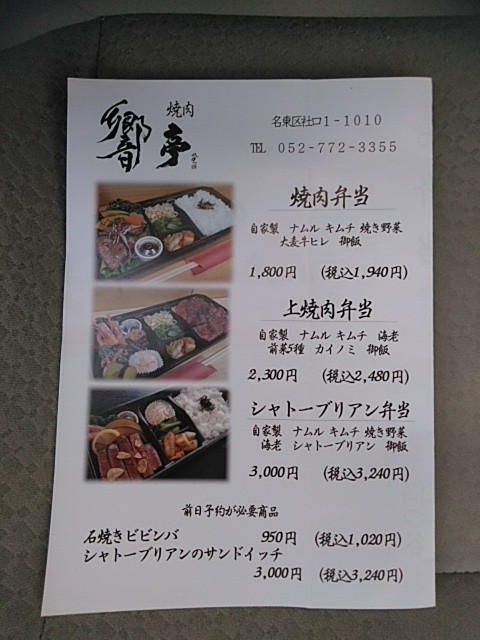 焼肉
響
亭
名東区社口1-1010
TEL 052-772-3355
焼肉弁当
自家製 ナムル キムチ 焼き野菜
大麦牛ヒレ 御飯
1,800円 (税込1,940円)
上焼肉弁当
自家製 ナムル キムチ 海老
前菜5種 カイノミ 御飯
2,300円 (税込2,480円)
シャトーブリアン弁当
自家製 ナムル キムチ 焼き野菜
海老 シャトーブリアン 御飯
3,000円 (税込3,240円)
前日予約が必要商品
石焼きビビンバ 950円 (税込1,020円)
シャトーブリアンのサンドイッチ
3,000円 (税込3,240円)